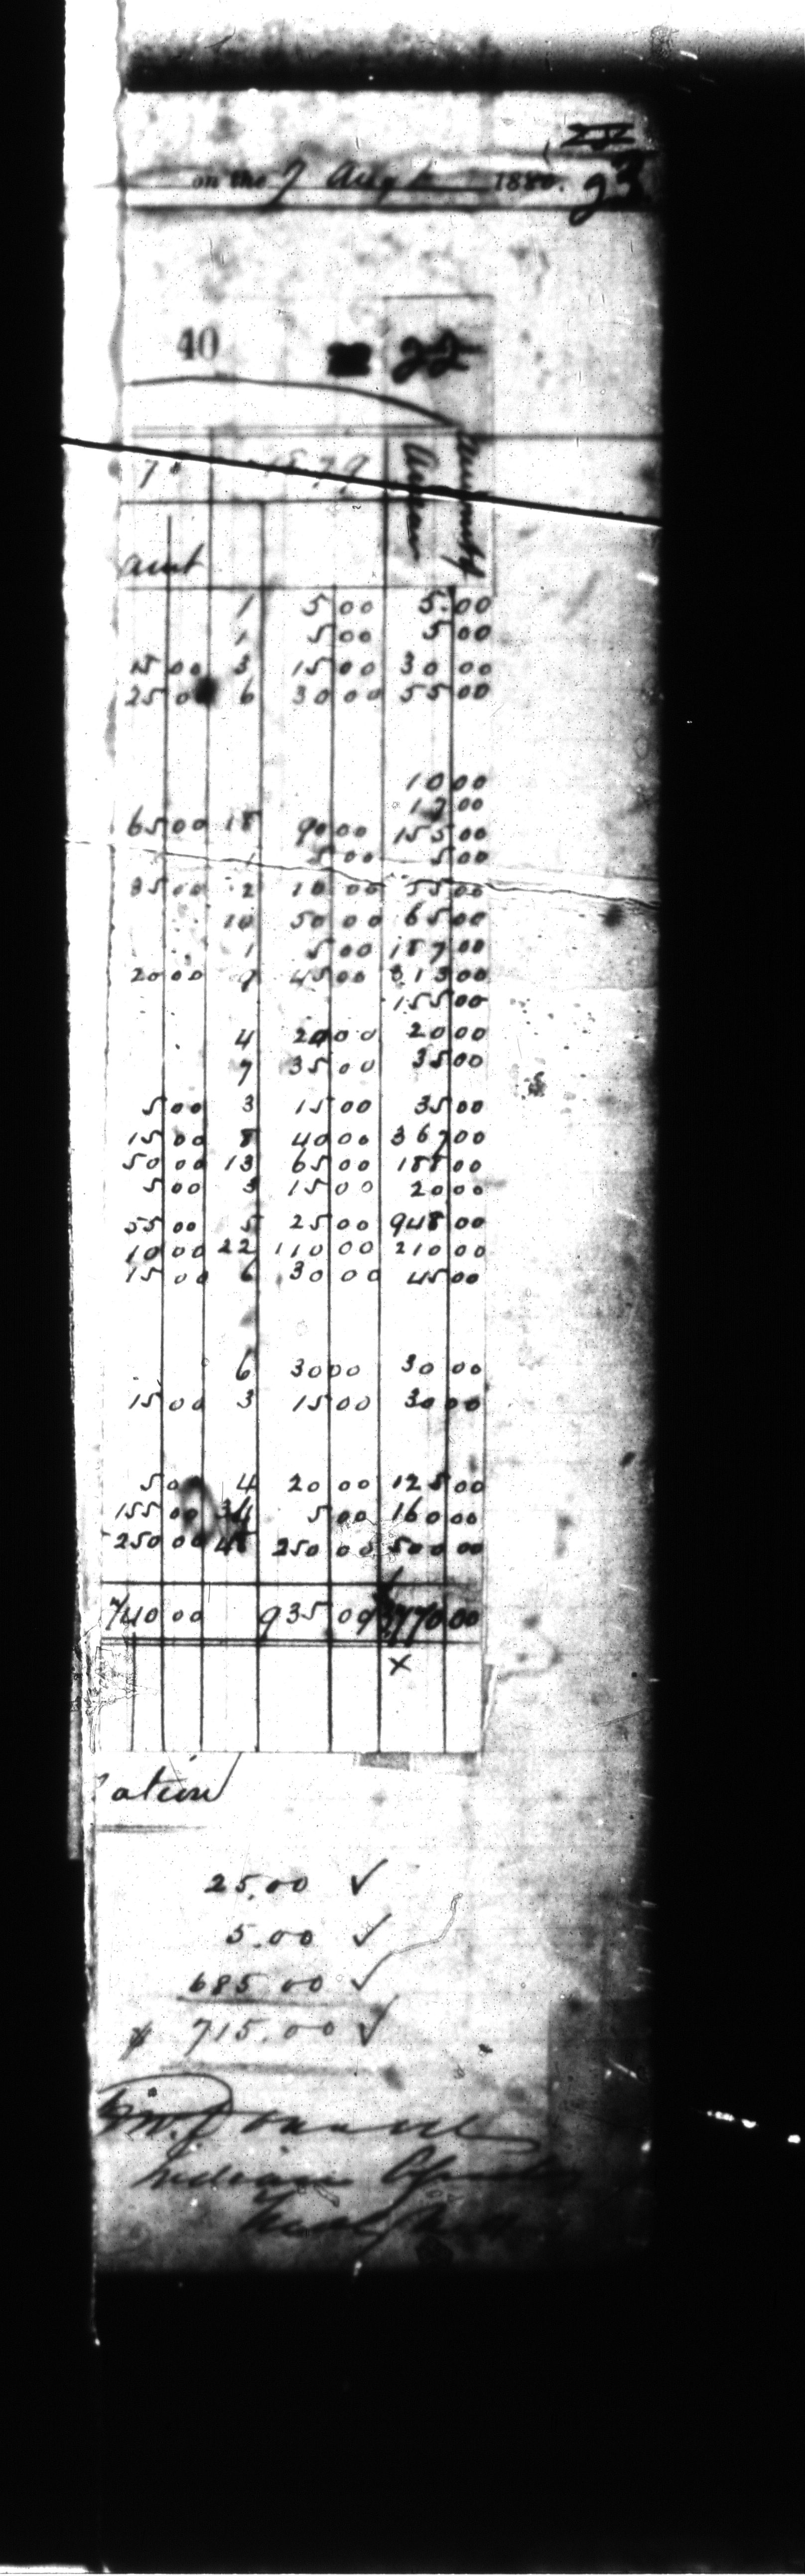 on the 9 Augt 1880. 23
40 22
7 1879 Annuity
amt
1 5 00 5.00
1 5 00 5 00
15 00 3 15 00 30 00
25 00 6 30 00 55 00
10 00
17 00
65 00 18 90 00 155 00
1 5 00 5 00
35 00 2 10 00 55 00
10 50 00 65 00
1 5 00 187 00
20 00 9 45 00 313 00
155 00
4 20 00 20 00
7 35 00 35 00
5 00 3 15 00 35 00
15 00 8 40 00 367 00
50 00 13 65 00 188 00
5 00 3 15 00 20 00
55 00 5 25 00 948 00
10 00 22 110 00 210 00
15 00 6 30 00 45 00
6 30 00 30 00
15 00 3 15 00 30 00
5 00 4 20 00 125 00
155 00 34 5 00 160 00
250 00 48 250 00 500 00
740 00 935 00 3770 00
x
ation
25.00 ✓
5.00 ✓
685.00 ✓
$ 715.00 ✓
Indian